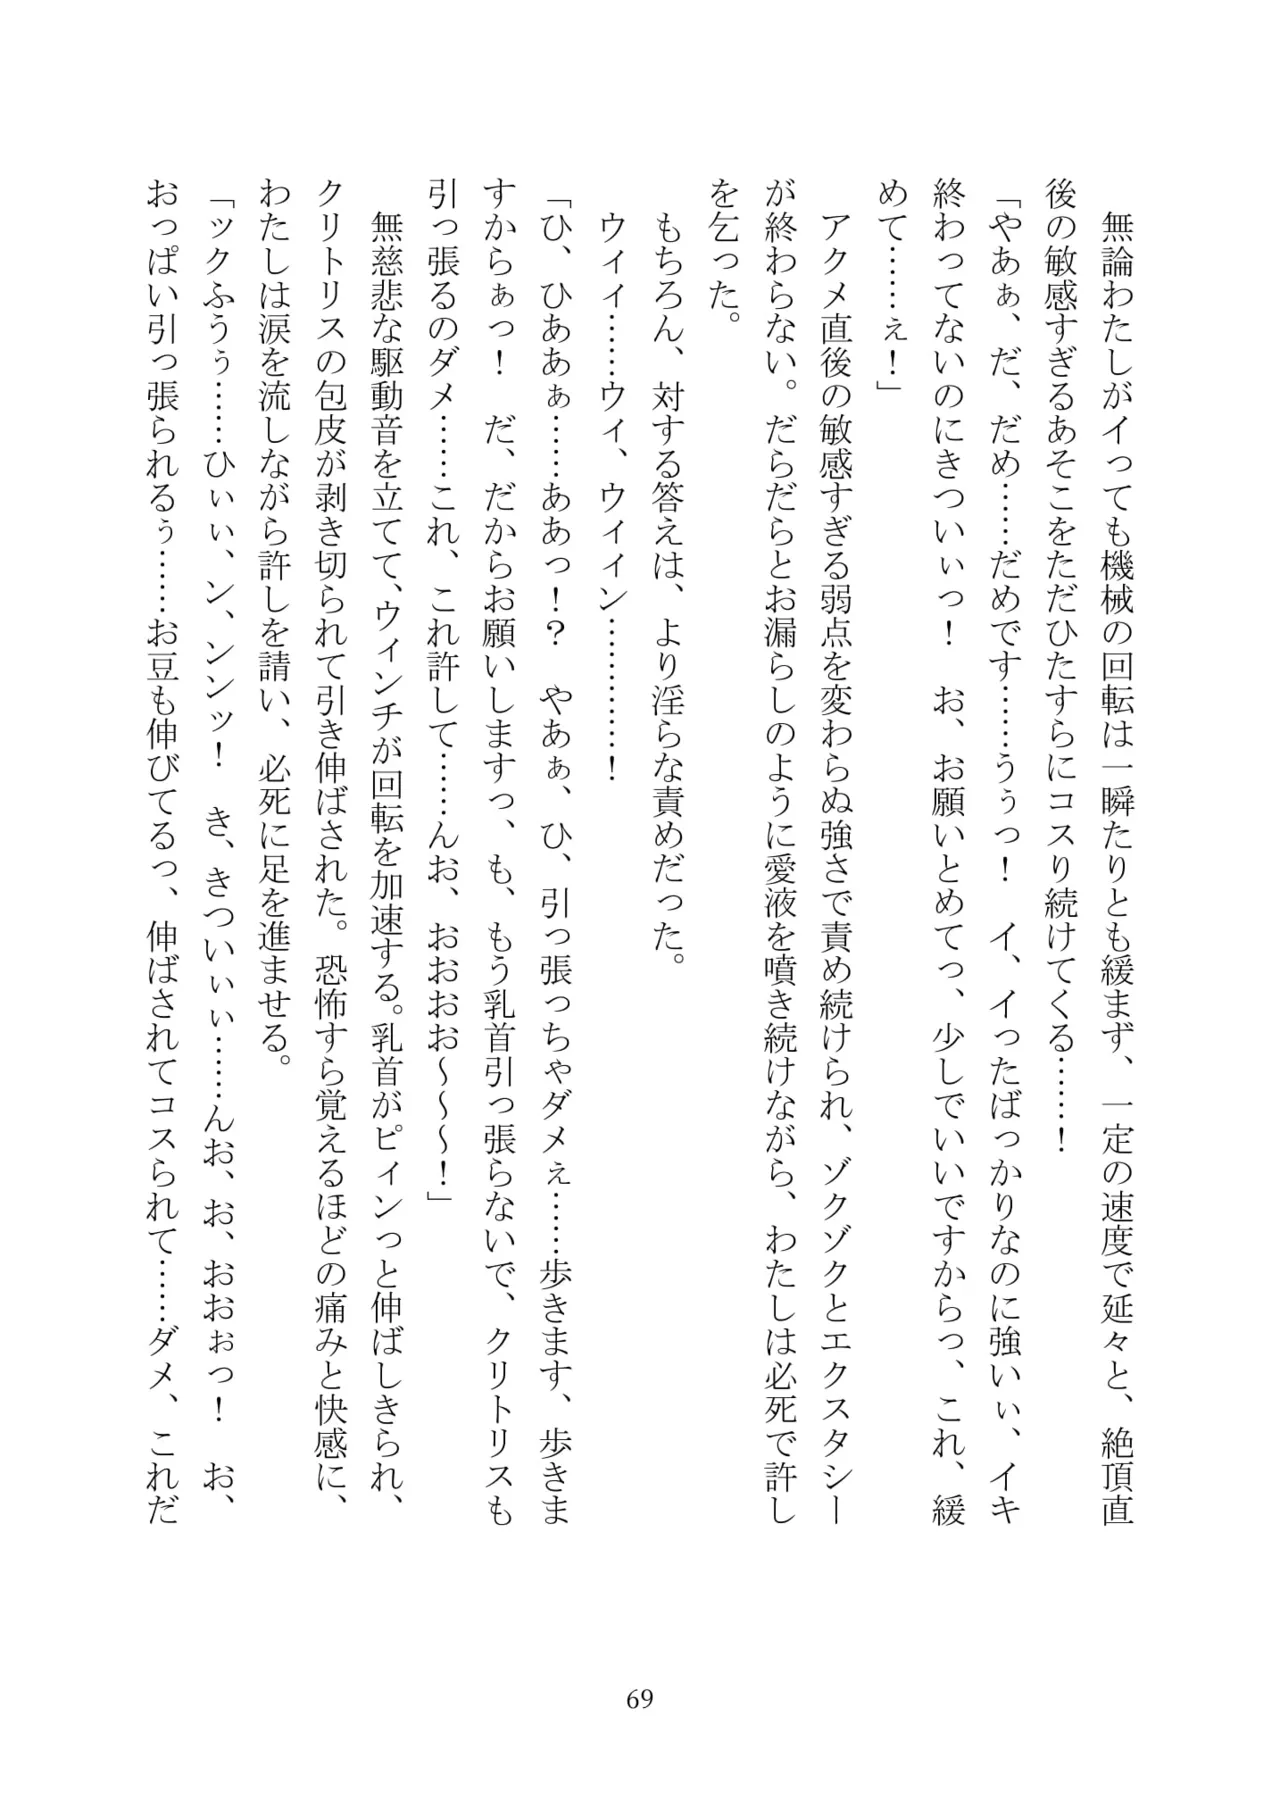 無論わたしがイっても機械の回転は一瞬たりとも緩まず、一定の速度で延々と、絶頂直
後の敏感すぎるあそこをただひたすらにコスり続けてくる……！
「やあぁ、だ、だめ……だめです……うぅっ！　イ、イったばっかりなのに強いぃ、イキ
終わってないのにきついぃっ！　お、お願いとめてっ、少しでいいですからっ、これ、緩
めて……ぇ！」
アクメ直後の敏感すぎる弱点を変わらぬ強さで責め続けられ、ゾクゾクとエクスタシー
が終わらない。だらだらとお漏らしのように愛液を噴き続けながら、わたしは必死で許し
を乞った。
もちろん、対する答えは、より淫らな責めだった。
ウィィ……ウィ、ウィィン…………！
「ひ、ひああぁ……ああっ！？　やあぁ、ひ、引っ張っちゃダメぇ……歩きます、歩きま
すからぁっ！　だ、だからお願いしますっ、も、もう乳首引っ張らないで、クリトリスも
引っ張るのダメ……これ、これ許して……んお、おおおお～～～！」
無慈悲な駆動音を立てて、ウィンチが回転を加速する。乳首がピィンっと伸ばしきられ、
クリトリスの包皮が剥き切られて引き伸ばされた。恐怖すら覚えるほどの痛みと快感に、
わたしは涙を流しながら許しを請い、必死に足を進ませる。
「ックふうぅ……ひぃぃ、ン、ンンッ！　き、きついぃぃ……んお、お、おおぉっ！　お、
おっぱい引っ張られるぅ……お豆も伸びてるっ、伸ばされてコスられて……ダメ、これだ
69